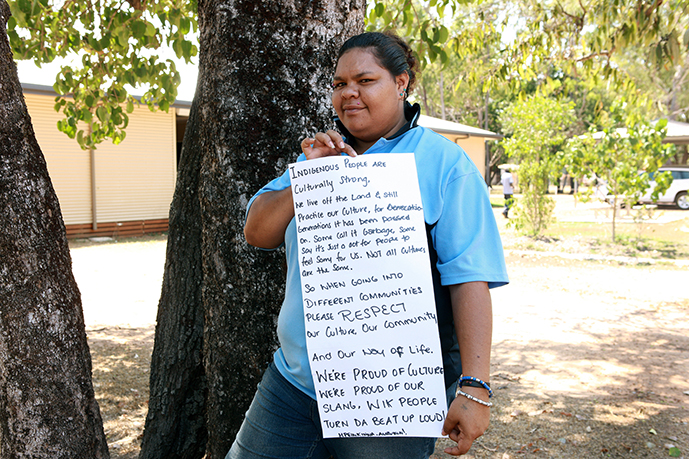 INDIGENOUS PEOPLE ARE
Culturally Strong.
We live off the Land & Still
Practice our Culture, for Generation
Generations it has been passed
on. Some call it Garbage, some
Say it's Just a act for people to
feel Sorry for US. NOT All Cultures
are the Same.
So WHEN GOING INTO
DIFFERENT COMMUNITIES
PLEASE RESPECT
our Culture. Our Community
And Our Way of Life.
WE'RE PROUD OF CULTURE
WE'RE PROUD OF OUR
SLANG. WIK PEOPLE
TURN DA BEAT UP LOUD!